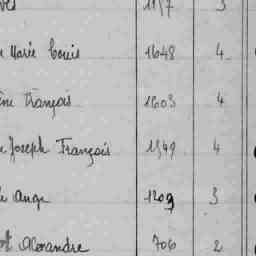 1157 3
Marie Louis 1648 4
François 1603 4
Joseph François 1549 4
Ange 1209 3
Alexandre 706 2